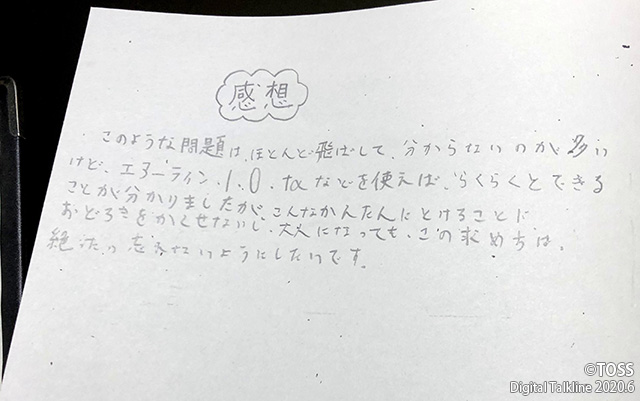 感想
このような問題は、ほとんど飛ばして、分からないのが多い
けど、エナーライン、1、0、tαなどを使えば、らくらくとできる
ことが分かりましたが、こんなかんたんにとけることに
おどろきをかくせないし、大人になっても、この求め方は、
絶たいわすれないようにしたいです。
©TOSS
Digital Talkline 2020.6